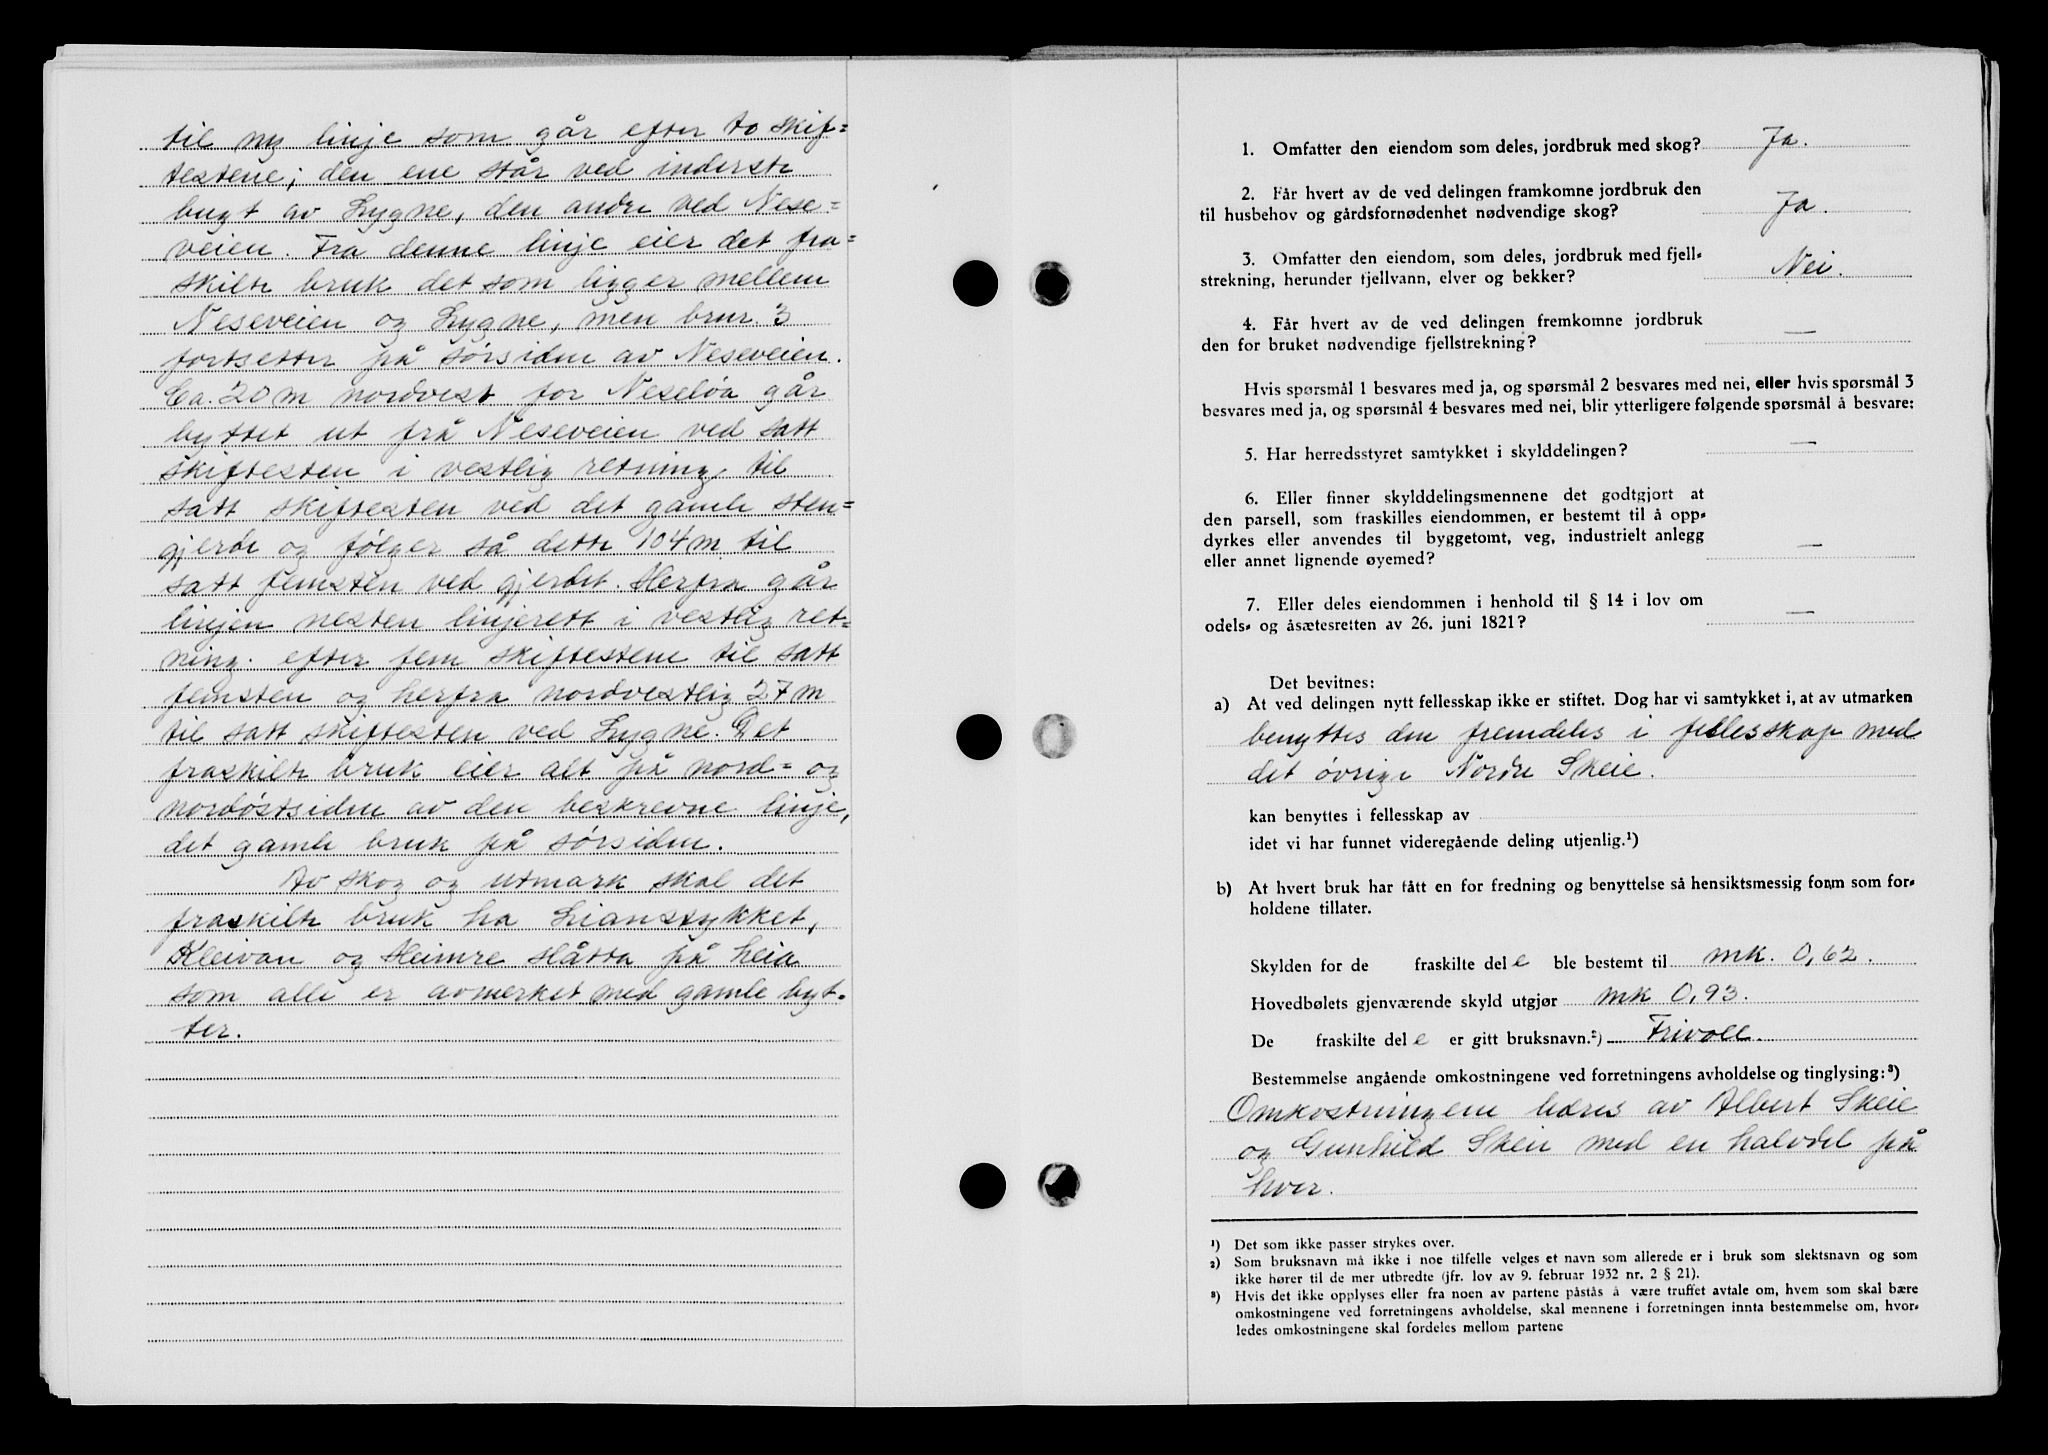 til ny linje som går efter to skif=
testene; den ene står ved inderste
bugt av Lygne, den andre ved Nese=
veien. Fra denne linje eier det fra=
skilte bruk det som ligger mellem
Neseveien og Lygne, men brnr. 3
fortsetter på sørsiden av Neseveien.
Ca. 20 m nordvest for Neseløa går
byttet ut frå Neseveien ved satt
skiftesten i vestlig retning til
satt skiftesten ved det gamle sten=
gjerde og følger så dette 104 m til
satt femsten ved gjerdet. Herfra går
linjen nesten linjerett i vestlig ret=
ning efter fem skiftestene til satt
femsten og herfra nordvestlig 27 m
til satt skiftesten ved Lygne. Det
fraskilte bruk eier alt på nord= og
nordøstsiden av den beskrevne linje,
det gamle bruk på sørsiden.
Av skog og utmark skal det
fraskilte bruk ha Lianstykket,
Kleivan og Heimre Slåtta på heia
som alle er avmerket med gamle byt-
ter.
1. Omfatter den eiendom som deles, jordbruk med skog? Ja.
2. Får hvert av de ved delingen framkomne jordbruk den
til husbehov og gårdsfornødenhet nødvendige skog? Ja.
3. Omfatter den eiendom, som deles, jordbruk med fjell-
strekning, herunder fjellvann, elver og bekker? Nei.
4. Får hvert av de ved delingen fremkomne jordbruk
den for bruket nødvendige fjellstrekning? —
Hvis spørsmål 1 besvares med ja, og spørsmål 2 besvares med nei, eller hvis spørsmål 3
besvares med ja, og spørsmål 4 besvares med nei, blir ytterligere følgende spørsmål å besvare:
5. Har herredsstyret samtykket i skylddelingen? —
6. Eller finner skylddelingsmennene det godtgjort at
den parsell, som fraskilles eiendommen, er bestemt til å opp-
dyrkes eller anvendes til byggetomt, veg, industrielt anlegg
eller annet lignende øyemed? —
7. Eller deles eiendommen i henhold til § 14 i lov om
odels- og åsætesretten av 26. juni 1821? —
Det bevitnes:
a) At ved delingen nytt fellesskap ikke er stiftet. Dog har vi samtykket i, at av utmarken
benyttes den fremdeles i fellesskap med
det øvrige Nordre Skeie.
kan benyttes i fellesskap av
idet vi har funnet videregående deling utjenlig.¹)
b) At hvert bruk har fått en for fredning og benyttelse så hensiktsmessig form som for-
holdene tillater.
Skylden for de fraskilte del e ble bestemt til mk. 0,62.
Hovedbølets gjenværende skyld utgjør mk 0,93.
De fraskilte del e er gitt bruksnavn.²) Frivoll.
Bestemmelse angående omkostningene ved forretningens avholdelse og tinglysing:³)
Omkostningene bæres av Albert Skeie
og Gunhild Skeie med en halvdel på
hver.
¹) Det som ikke passer strykes over.
²) Som bruksnavn må ikke i noe tilfelle velges et navn som allerede er i bruk som slektsnavn og som
ikke hører til de mer utbredte (jfr. lov av 9. februar 1932 nr. 2 § 21).
³) Hvis det ikke opplyses eller fra noen av partene påstås å være truffet avtale om, hvem som skal bære
omkostningene ved forretningens avholdelse, skal mennene i forretningen innta bestemmelse om, hvor-
ledes omkostningene skal fordeles mellom partene